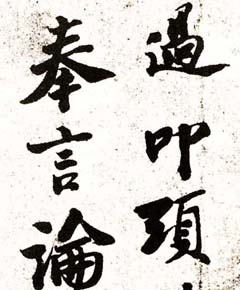 過叩頭
奉言論